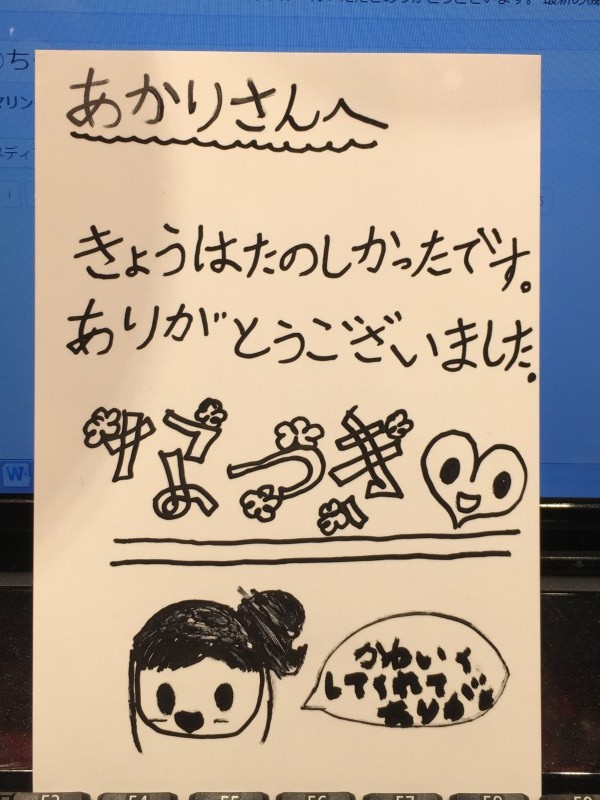 あかりさんへ
きょうはたのしかったです。
ありがとうございました。
なつき
かわいく
してくれて
ありがと
W
F3 F4 F5 F6 F7 F8